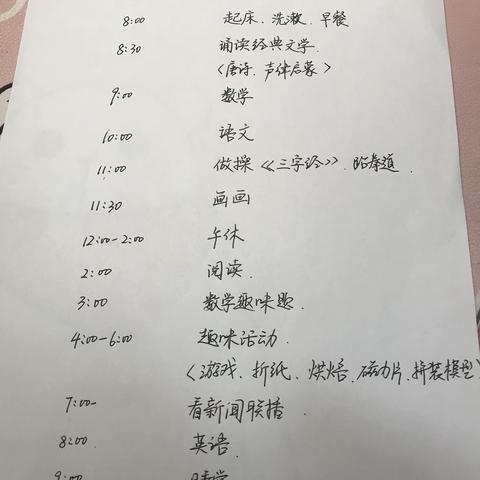 8:00 起床、洗漱、早餐
8:30 诵读经典文学
<唐诗、声律启蒙>
9:00 数学
10:00 语文
11:00 做操《三字经》、跆拳道
11:30 画画
12:00-2:00 午休
2:00 阅读.
3:00 数学趣味题.
4:00-6:00 趣味活动.
<游戏、折纸、烘焙、磁力片、拼装模型>
7:00- 看新闻联播.
8:00. 英语.
9:00